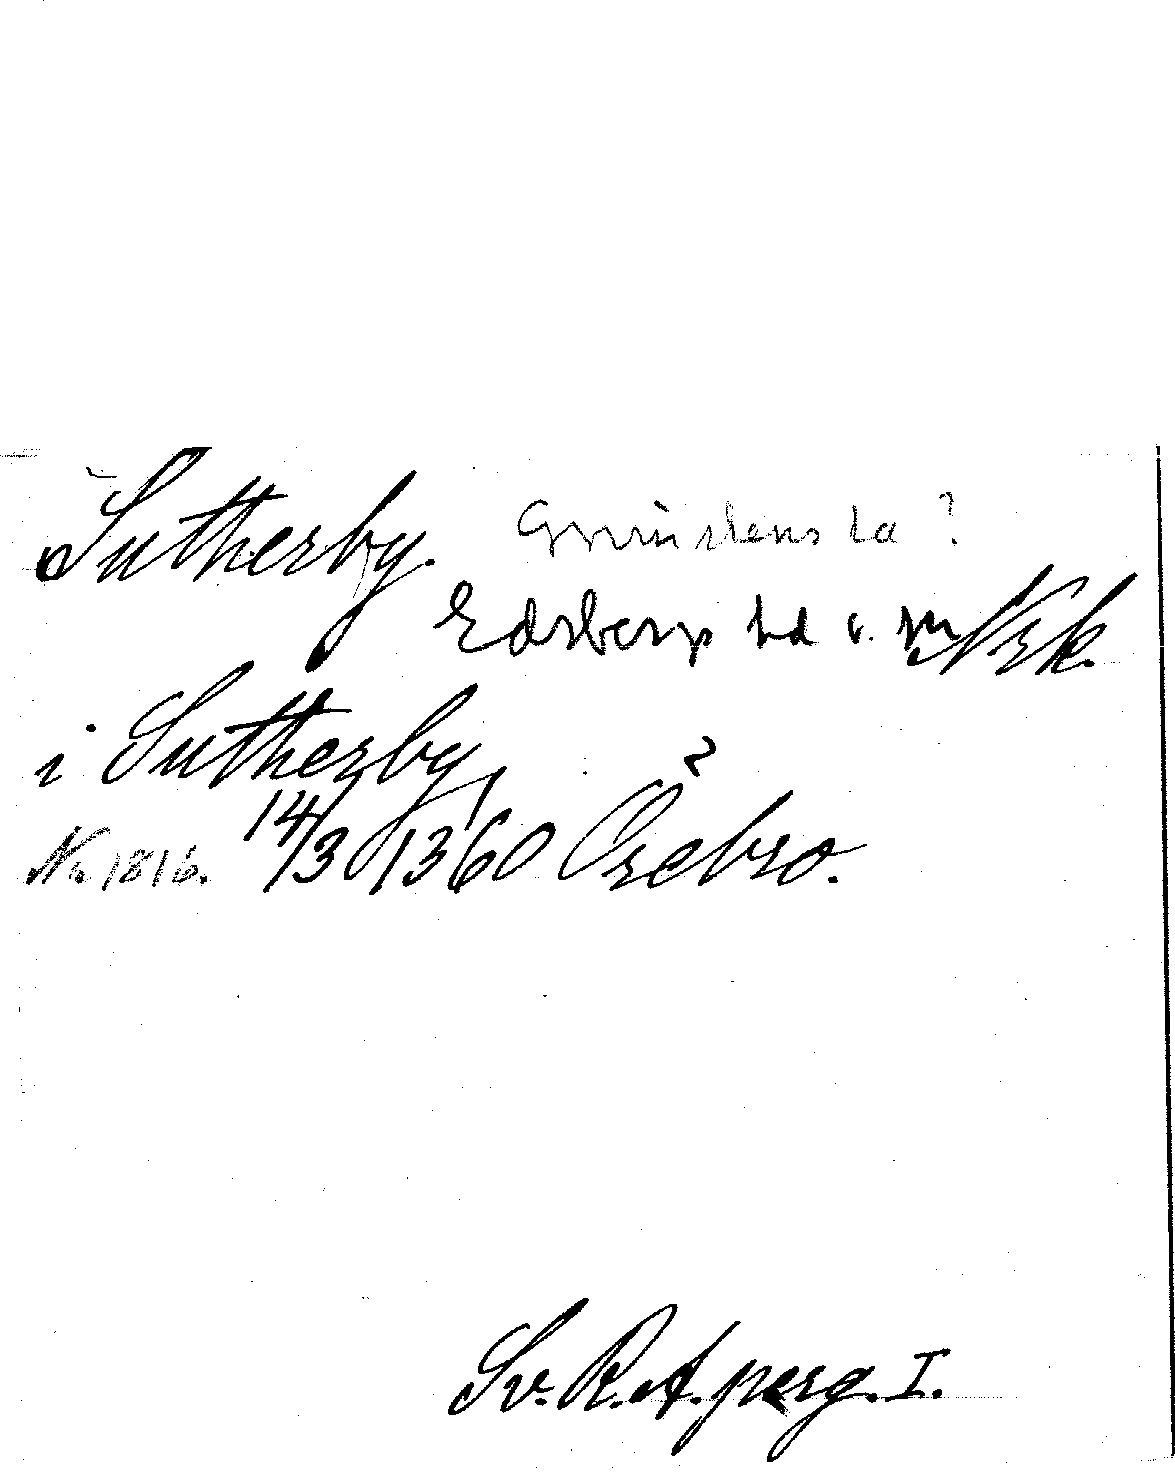 Sutherby. Grimstens hd?
Edsbergs hd v. m Nrk.
i Sutherby,
No. 1816. 14/3 1360 Örebro.
Sv. R. A. perg. I.